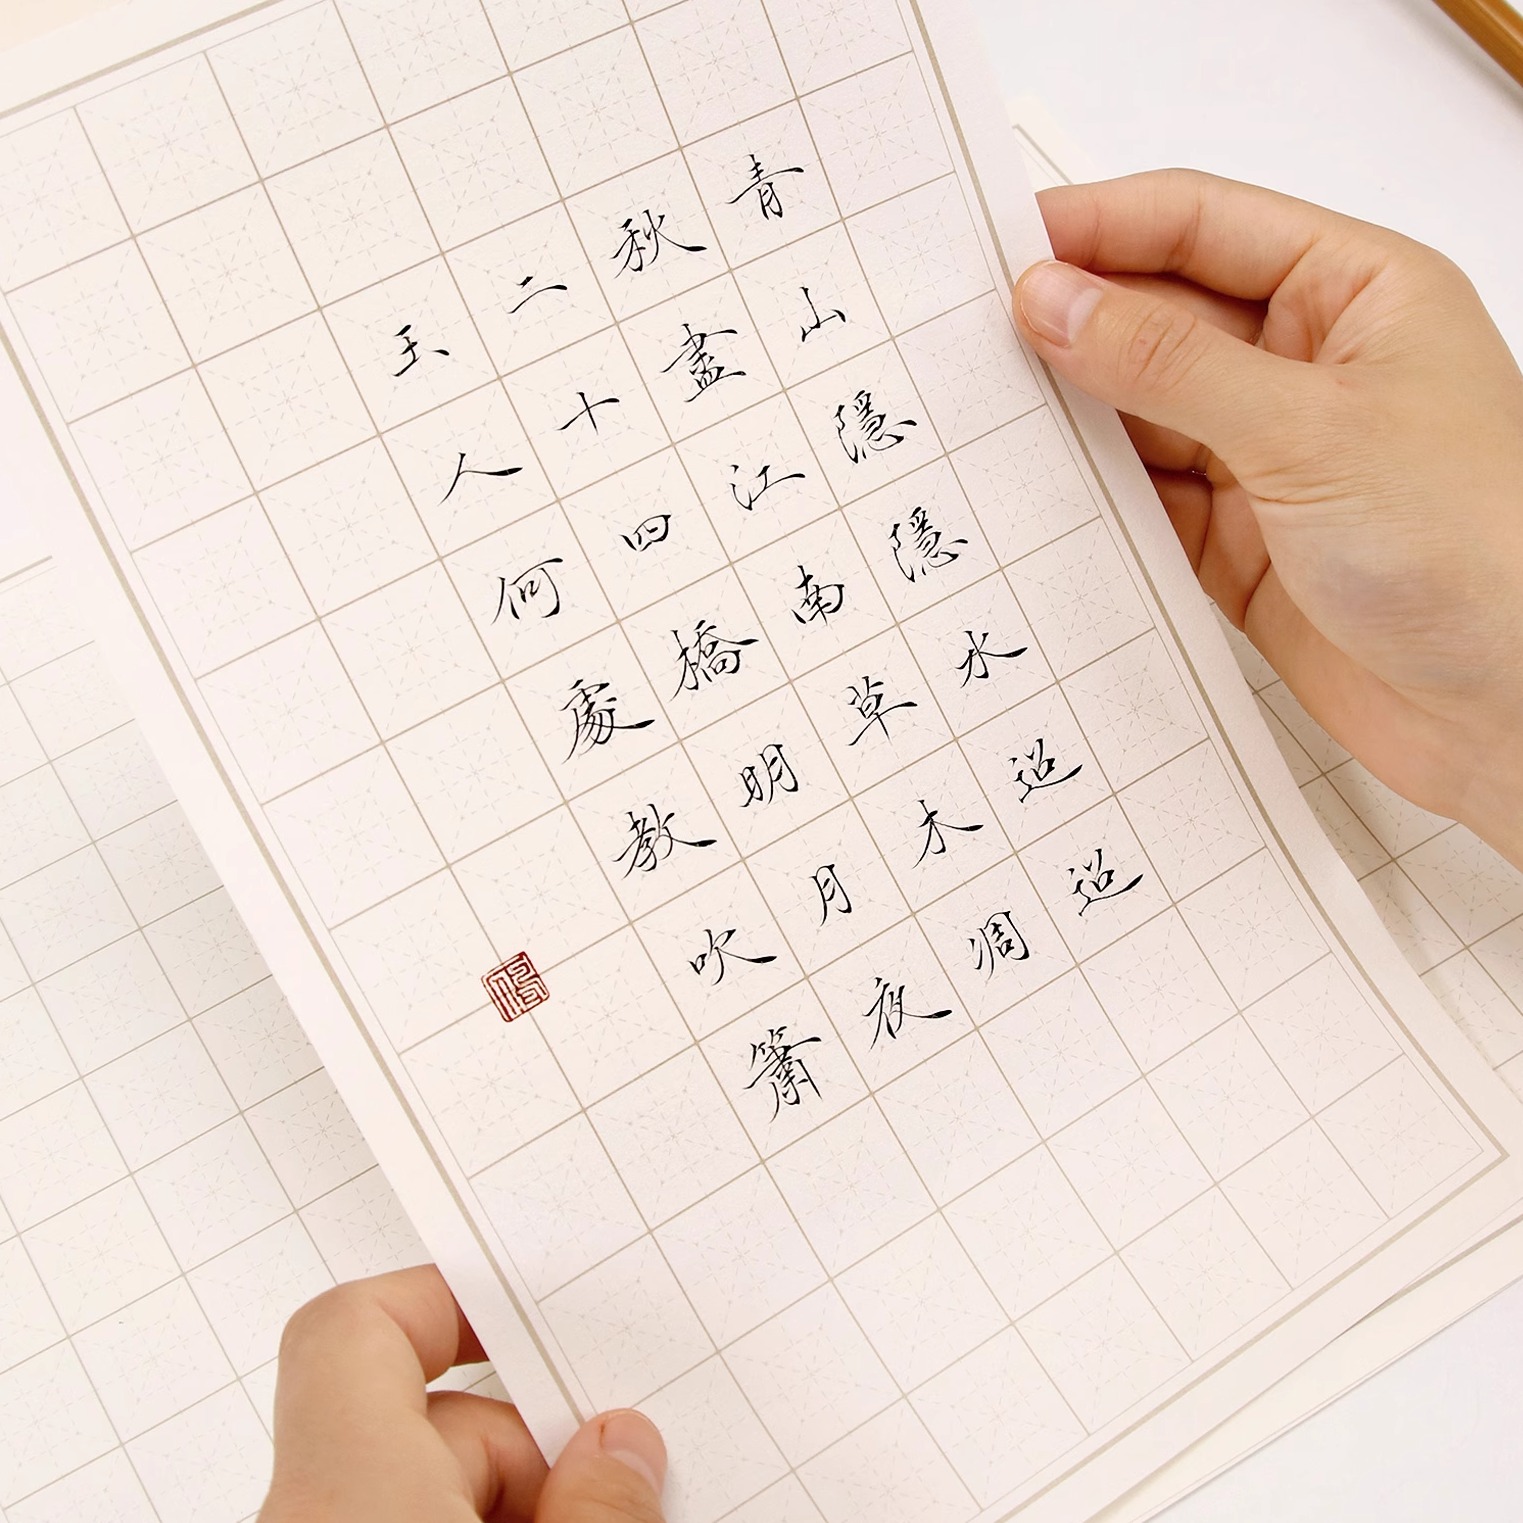 青山隱隱水迢迢
秋盡江南草木凋
二十四橋明月夜
玉人何處教吹簫